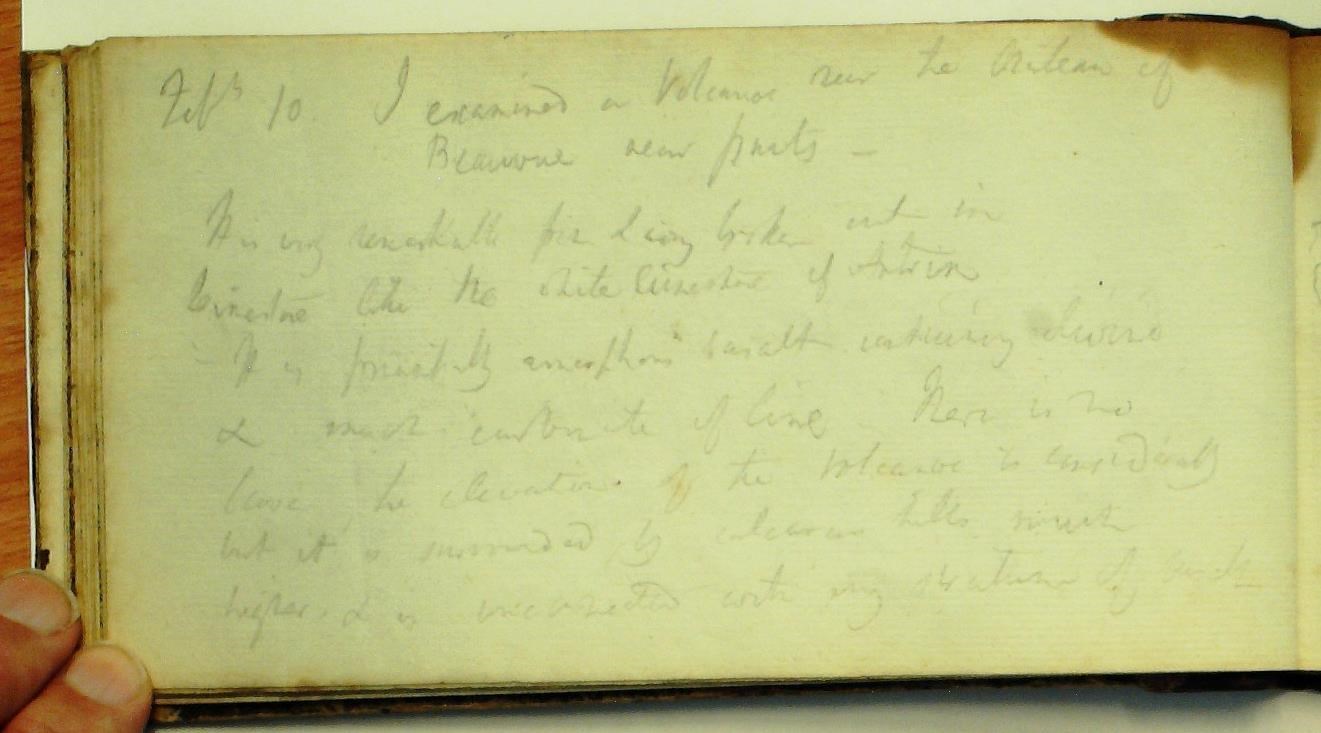 Feby 10. I examined a Volcanoe near the Chateau of
Beaurne near
It is very remarkable for having broken out in
limestone like the white limestone of Antrim
- It is principally amorphous basalt containing olivine
& much carbonate of lime. There is no
lava, the elevation of the Volcanoe is considerable
but it is surrounded by calcareous hills much
higher. & is unconnected with any stratum of